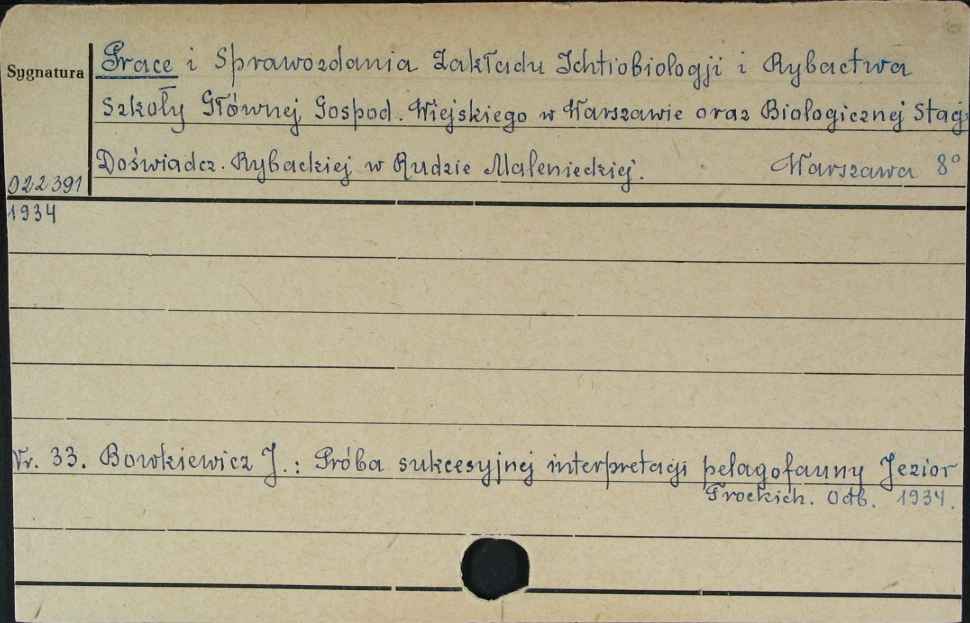 Prace i Sprawozdania Zakładu Ichtiobiologji i Rybactwa
Sygnatura
Szkoły Głównej Gospod. Wiejskiego w Warszawie oraz Biologicznej Stacj
Doświadcz. Rybackiej w Rudzie Malenieckiej. Warszawa 8°
022391
1934
Nr. 33. Bowkiewicz J.: Próba sukcesyjnej interpretacji pelagofauny Jezior
Trockich. Odb. 1934.